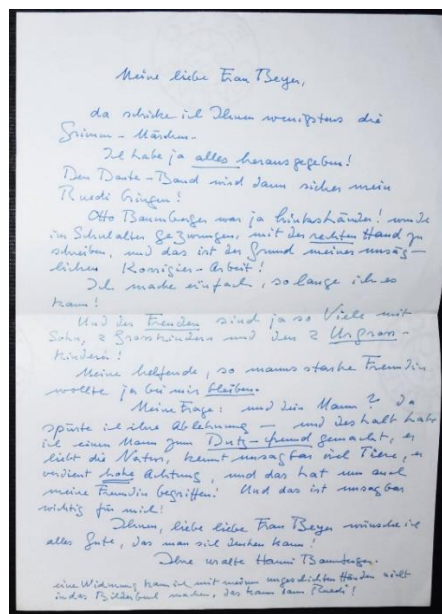 Meine liebe Frau Beyer,
da schicke ich Ihnen wenigstens die
Grimm-Märchen-
Ich habe ja alles herausgegeben!
Den Dante-Band wird dann sicher mein
Ruedi bringen!
Otto Baumberger war ja Linkashänder! wurde
im Schulalter gezwungen, mit der rechten Hand zu
schreiben, und das ist der Grund meiner unsäg-
lichen Korrigier-Arbeit!
Ich mache einfach, solange ich es
kann!
Und der Freuden sind ja so Viele mit
Sohn, 2 Grosskindern und den 2 Urgross-
kindern!
Meine helfende, so mannsstarke Freundin
wollte ja bei mir bleiben.
Meine Frage: und dein Mann? Da
spürte ich ihre Ablehnung – und deshalb habe
ich einen Mann zum Dutz-freund gemacht, er
liebt die Natur, kennt unsagbar viel Tiere, er
verdient hohe Achtung, und das hat nun auch
meine Freundin begriffen! Und das ist unsagbar
wichtig für mich!
Ihnen, liebe liebe Frau Beyer wünsche ich
alles Gute, das man sich denken kann!
Ihre uralte Hanni Baumberger.
eine Widmung kann ich mit meinen ungeschickten Händen nicht
in das Bilderbuch machen, das kann dann Ruedi!